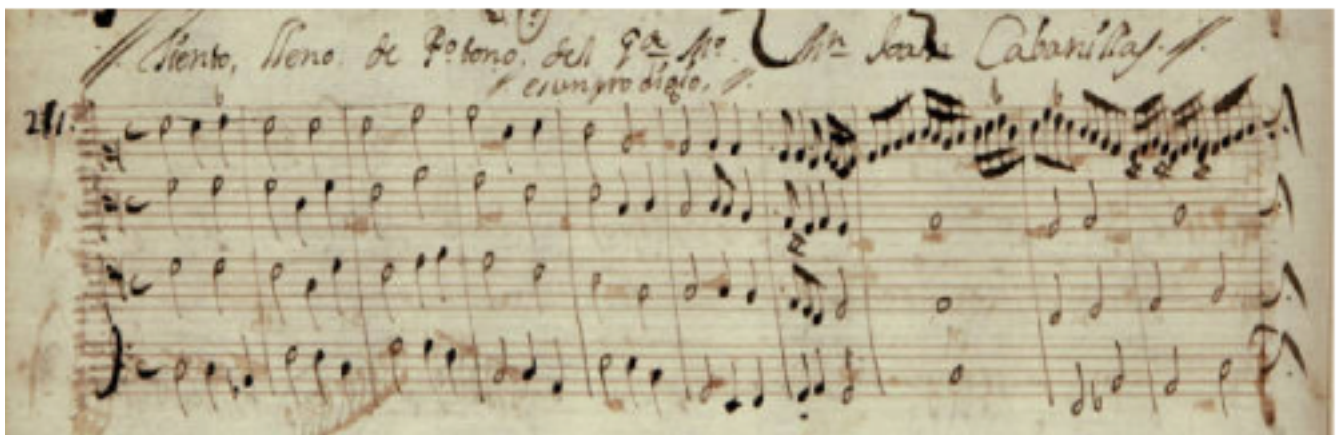 // tiento, lleno. de Pº. tono. del Gᵈᵉ Mº. Mⁿ Joan Cabanillas. //.
// es un prodigio, //.